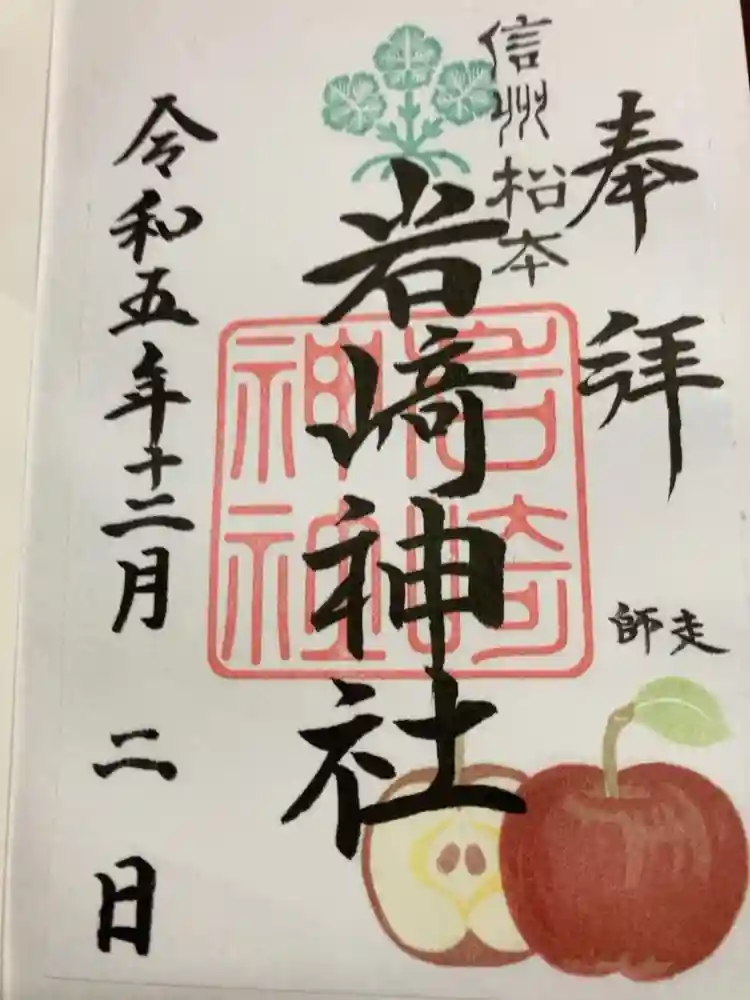 奉拝
信州松本
岩崎神社
岩崎神社
師走
令和五年十二月二日